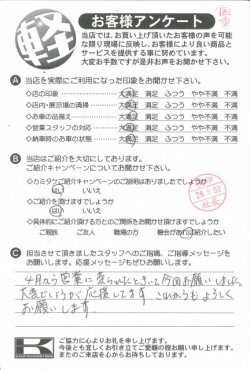 軽
お客様アンケート
当店では、お買い上げ頂いたお客様の声を可能
な限り現場に反映し、お客様により良い商品と
サービスを提供する事に努めています。
大変お手数ですが是非お声をお聞かせ下さい。
A 当店を実際にご利用になった印象をお聞かせ下さい。
◇店の印象 大満足 満足 ふつう やや不満 不満
◇店内・展示場の清掃 大満足 満足 ふつう やや不満 不満
◇お車の品揃え 大満足 満足 ふつう やや不満 不満
◇営業スタッフの対応 大満足 満足 ふつう やや不満 不満
◇納車時のお車の状態 大満足 満足 ふつう やや不満 不満
B 当店はご紹介を大切にしております。
ご紹介キャンペーンについてお聞かせ下さい。
◇カミタケご紹介キャンペーンの説明はありましたでしょうか
はい いいえ
◇ご紹介を頂けますでしょうか
はい いいえ
◇具体的にご紹介頂ける方とのご関係をお聞かせ頂けますでしょうか
ご親族 ご友人 職場の方 機会があれば紹介したい
C 担当させて頂きましたスタッフへのご指摘、ご指導メッセージを
お願いします。応援メッセージもぜひお願いします。
4月から営業に変られたときいて今回お願いしました。
大変でしょうが応援してます これからもよろしく
お願いします。
K
ご協力に心よりお礼を申し上げます。
今後とも宜しくお引き立てご愛顧の程お願い申し上げます。
またのご来店を心からお待ちしております。